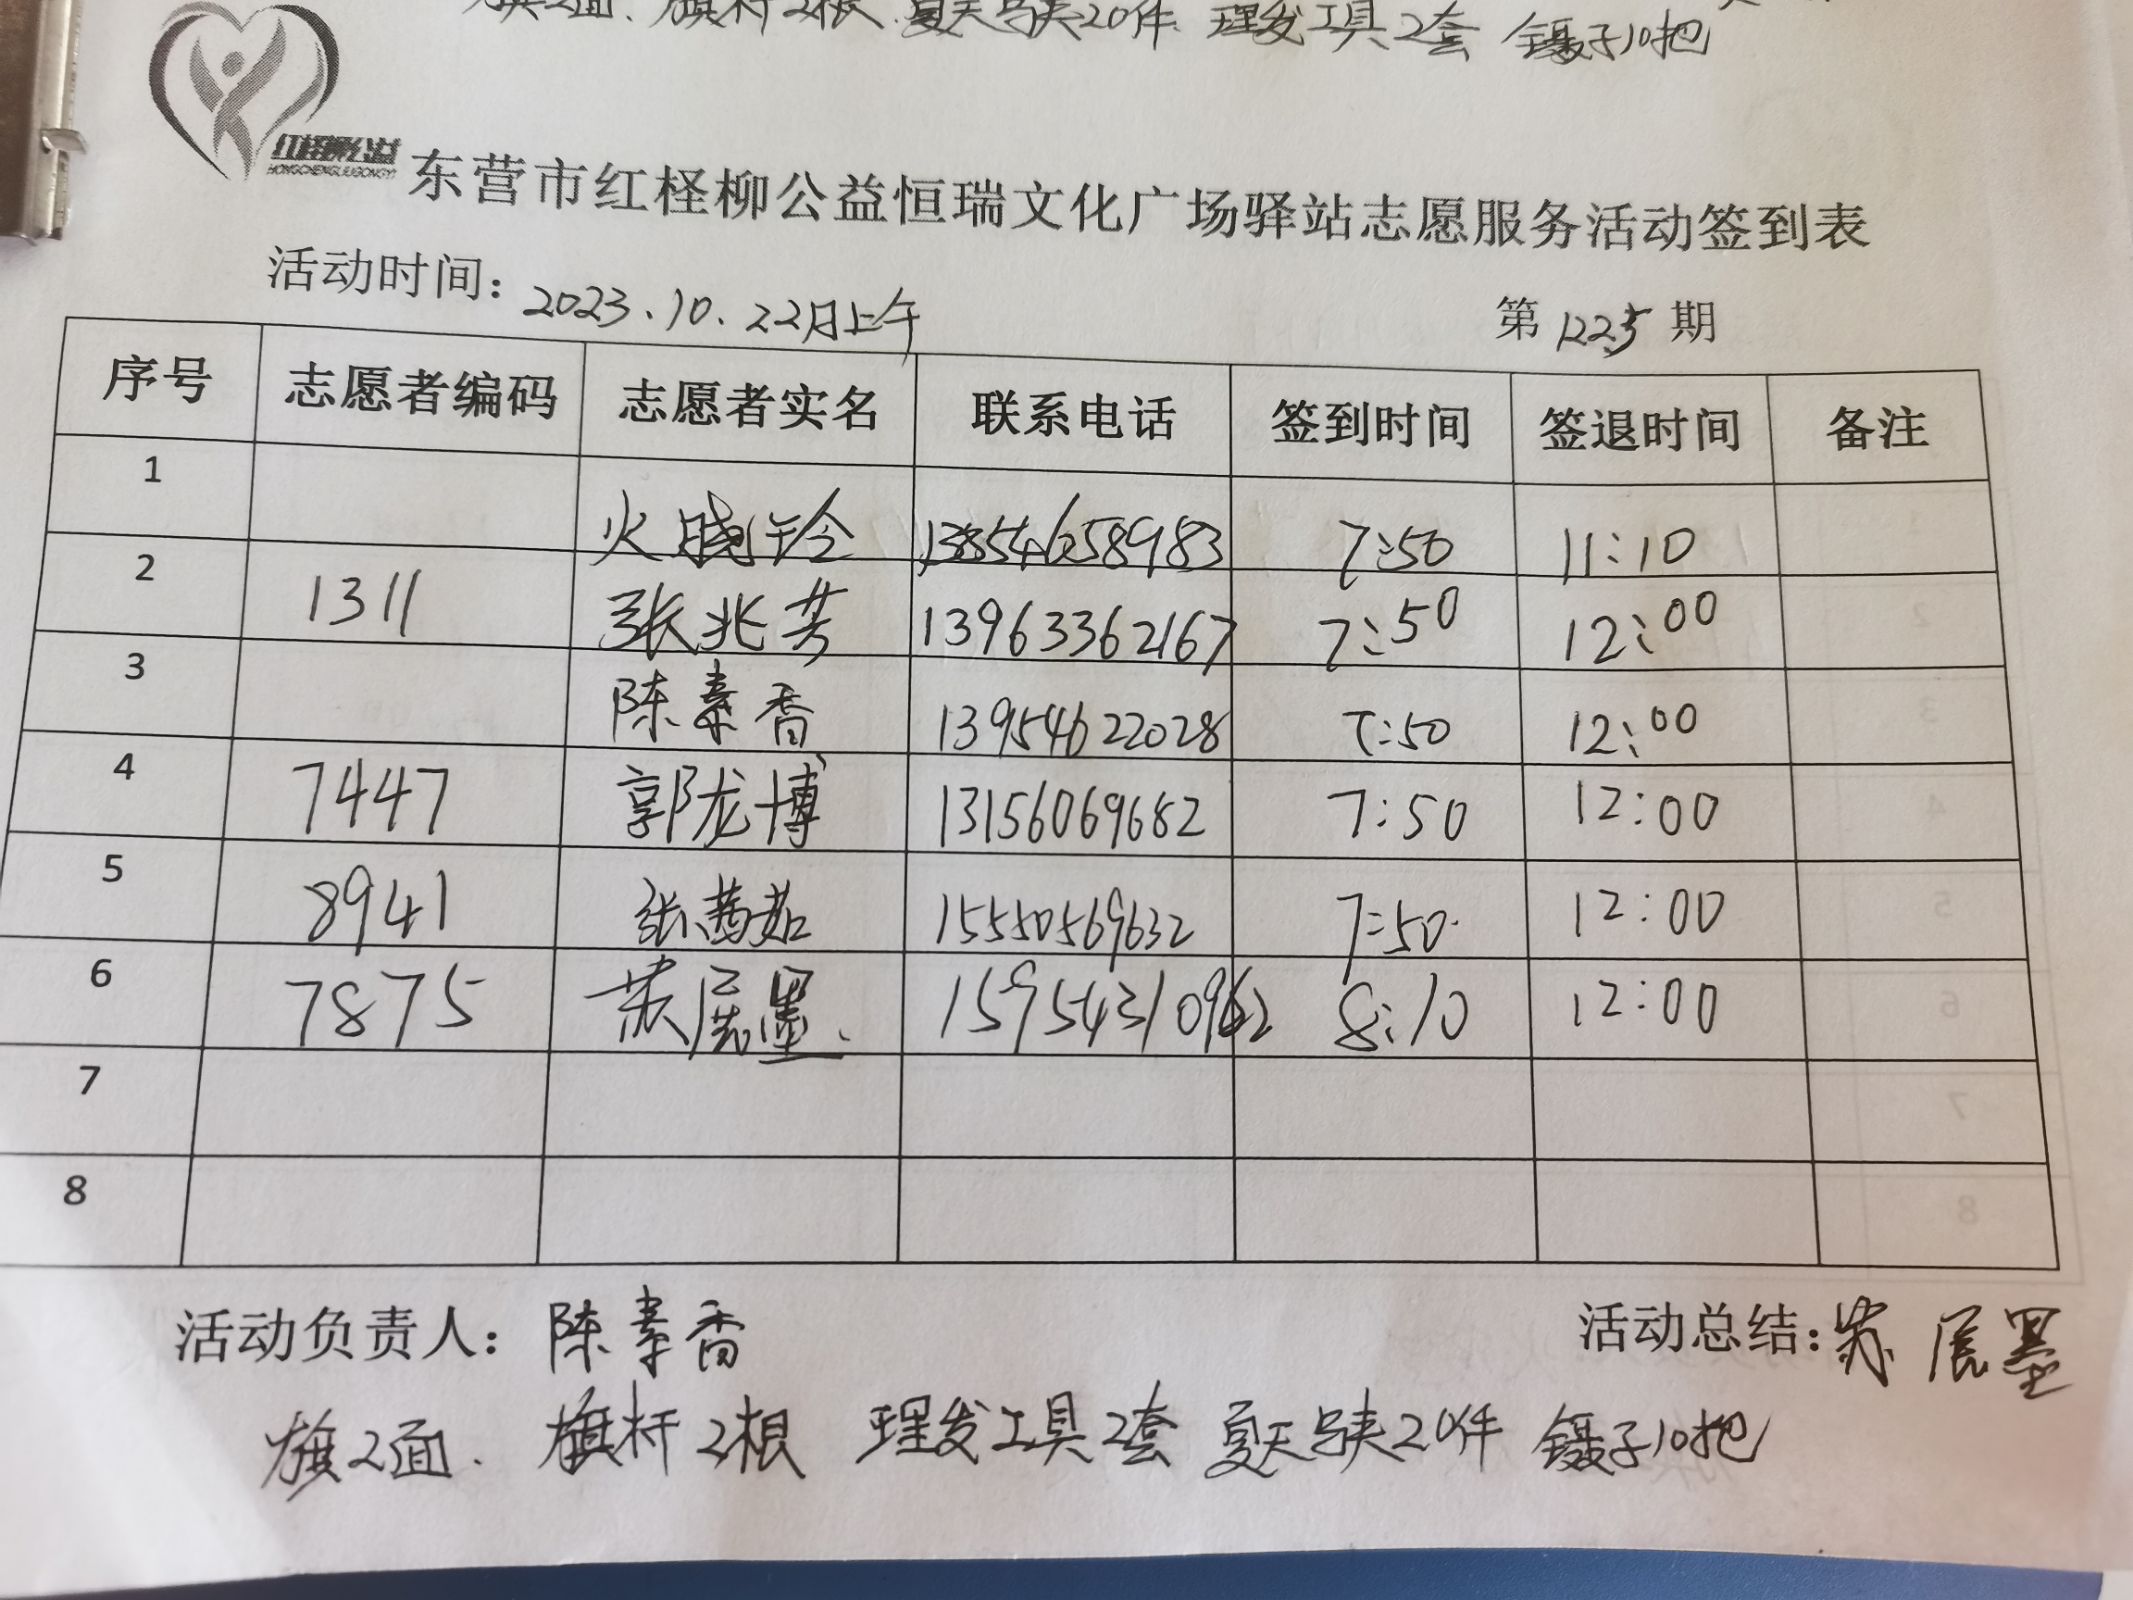 旗2面. 旗杆2根 夏天马夹20件 理发工具2套 镊子10把
红柽柳公益
HONGCHENGLIUGONGYI
东营市红柽柳公益恒瑞文化广场驿站志愿服务活动签到表
活动时间: 2023.10.22日上午 第1225期
序号 志愿者编码 志愿者实名 联系电话 签到时间 签退时间 备注
1 火晓玲 13854658983 7:50 11:10
2 1311 张兆芳 13963362167 7:50 12:00
3 陈素香 13954622028 7:50 12:00
4 7447 郭龙博 13156069682 7:50 12:00
5 8941 张茜茹 15550569632 7:50 12:00
6 7875 展墨 15954310962 8:10 12:00
7
8
活动负责人: 陈素香 活动总结: 展墨
旗2面. 旗杆2根 理发工具2套 夏天马夹20件 镊子10把